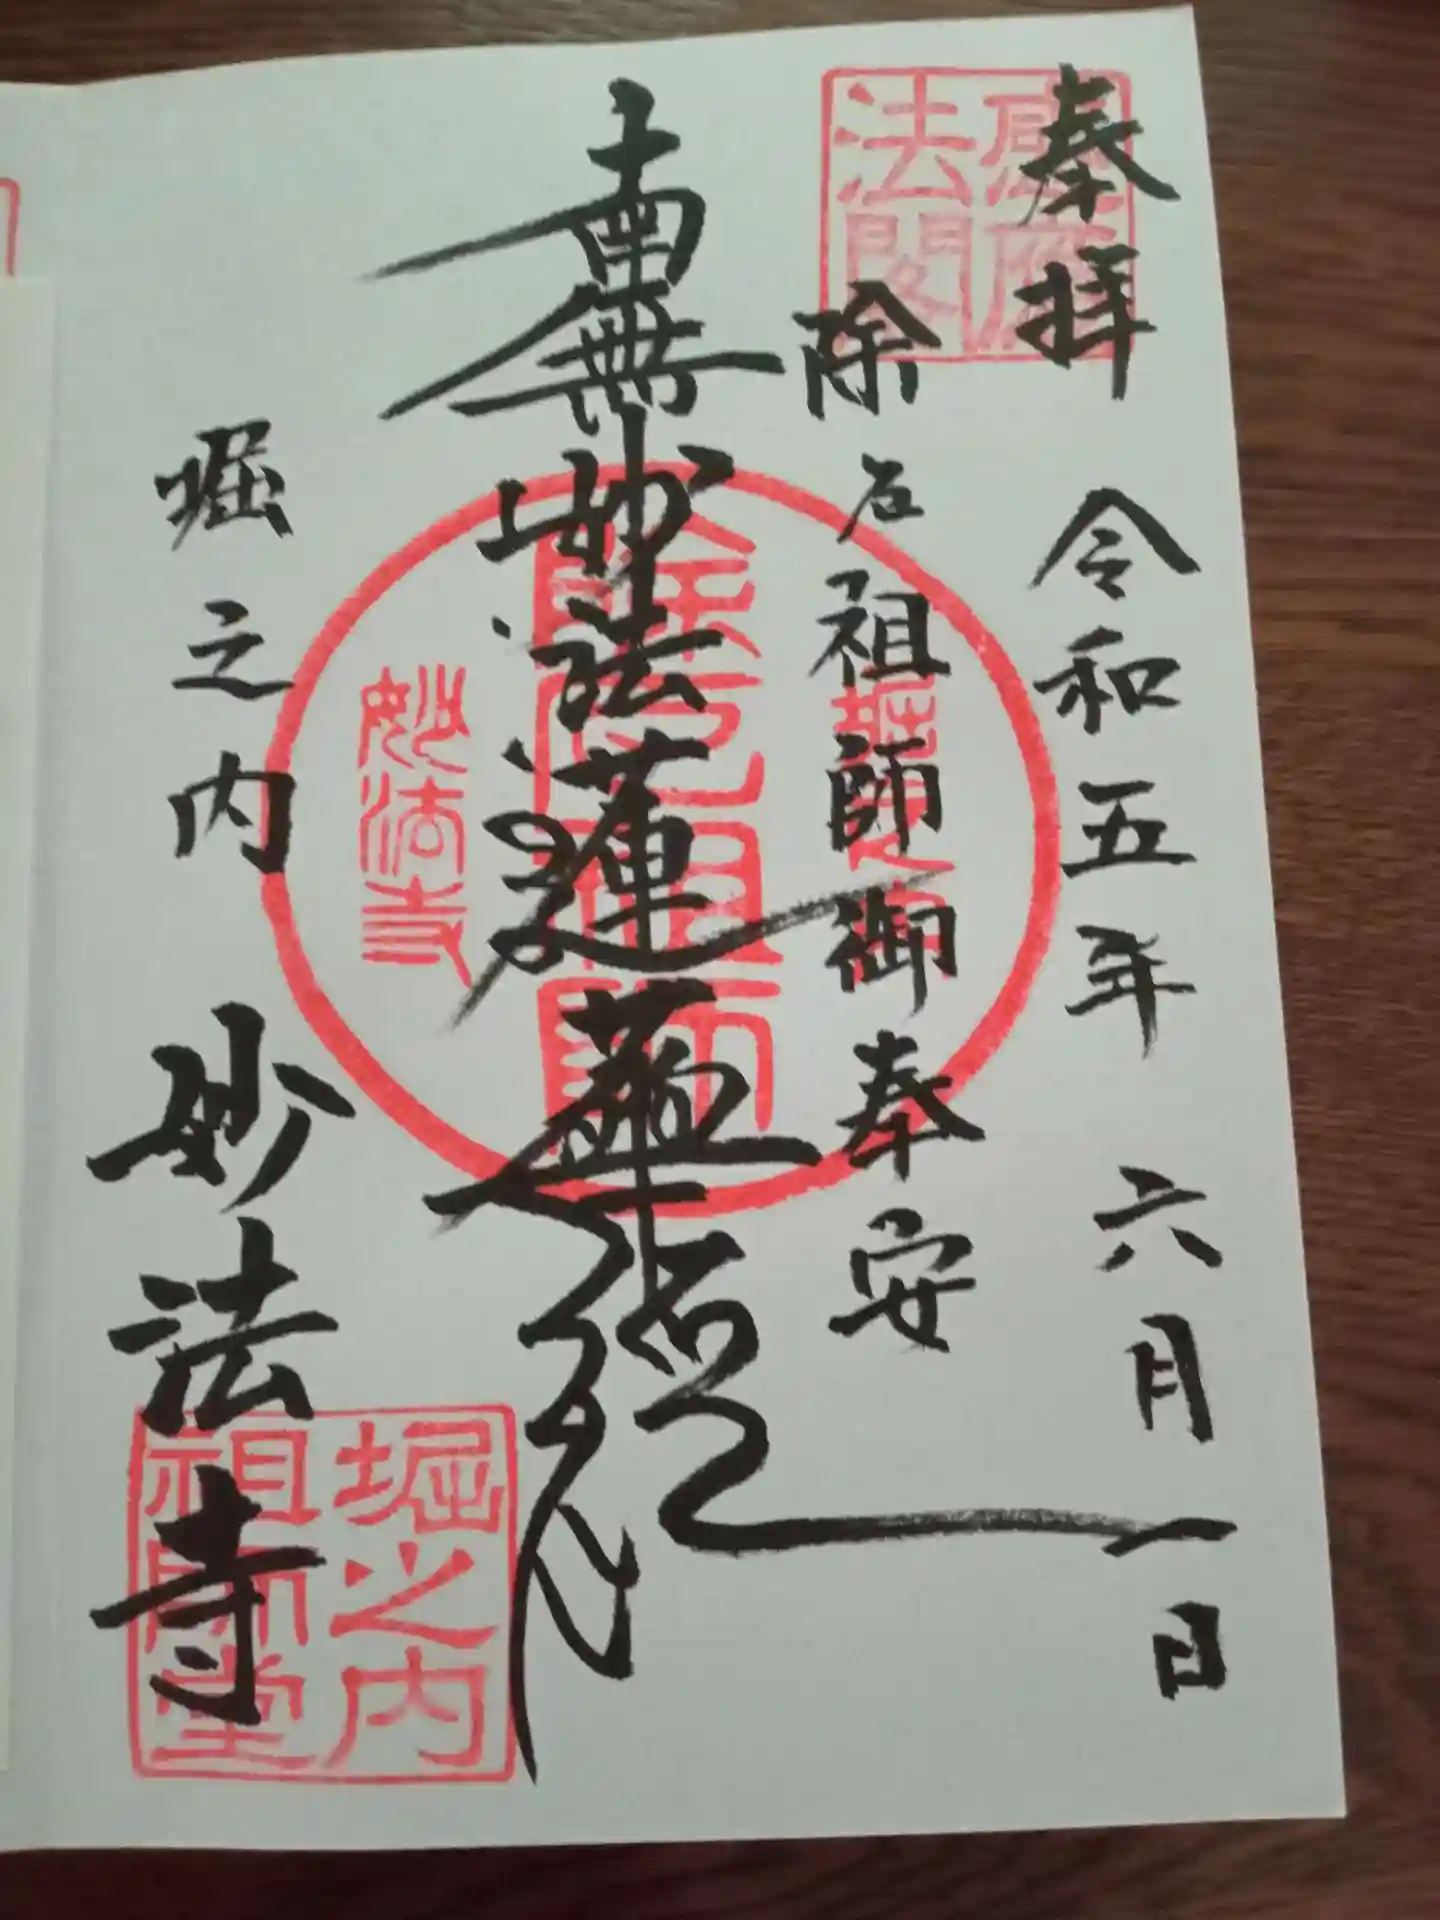 奉拝 令和五年 六月一日
除厄祖師御奉安
南無妙法蓮華経
堀之内 妙法寺
除厄祖師
妙法寺
堀之内
祖師堂